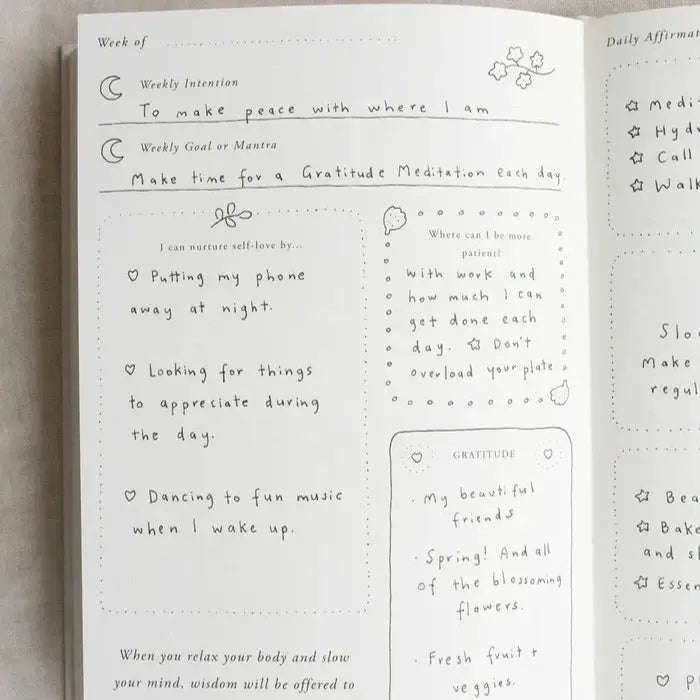 Week of
Weekly Intention
To make peace with where I am
Weekly Goal or Mantra
Make time for a Gratitude Meditation each day.
I can nurture self-love by...
Putting my phone
away at night.
Looking for things
to appreciate during
the day.
Dancing to fun music
when I wake up.
When you relax your body and slow
your mind, wisdom will be offered to
Where can I be more
patient?
with work and
how much I can
get done each
day. ☆ Don't
overload your plate
GRATITUDE
· My beautiful
friends
· Spring! And all
of the blossoming
flowers.
· Fresh fruit +
veggies.
Daily Affirmat
Medi
Hyd
Call
Walk
Slo
Make
regul
Bea
Bake
and s
Essen